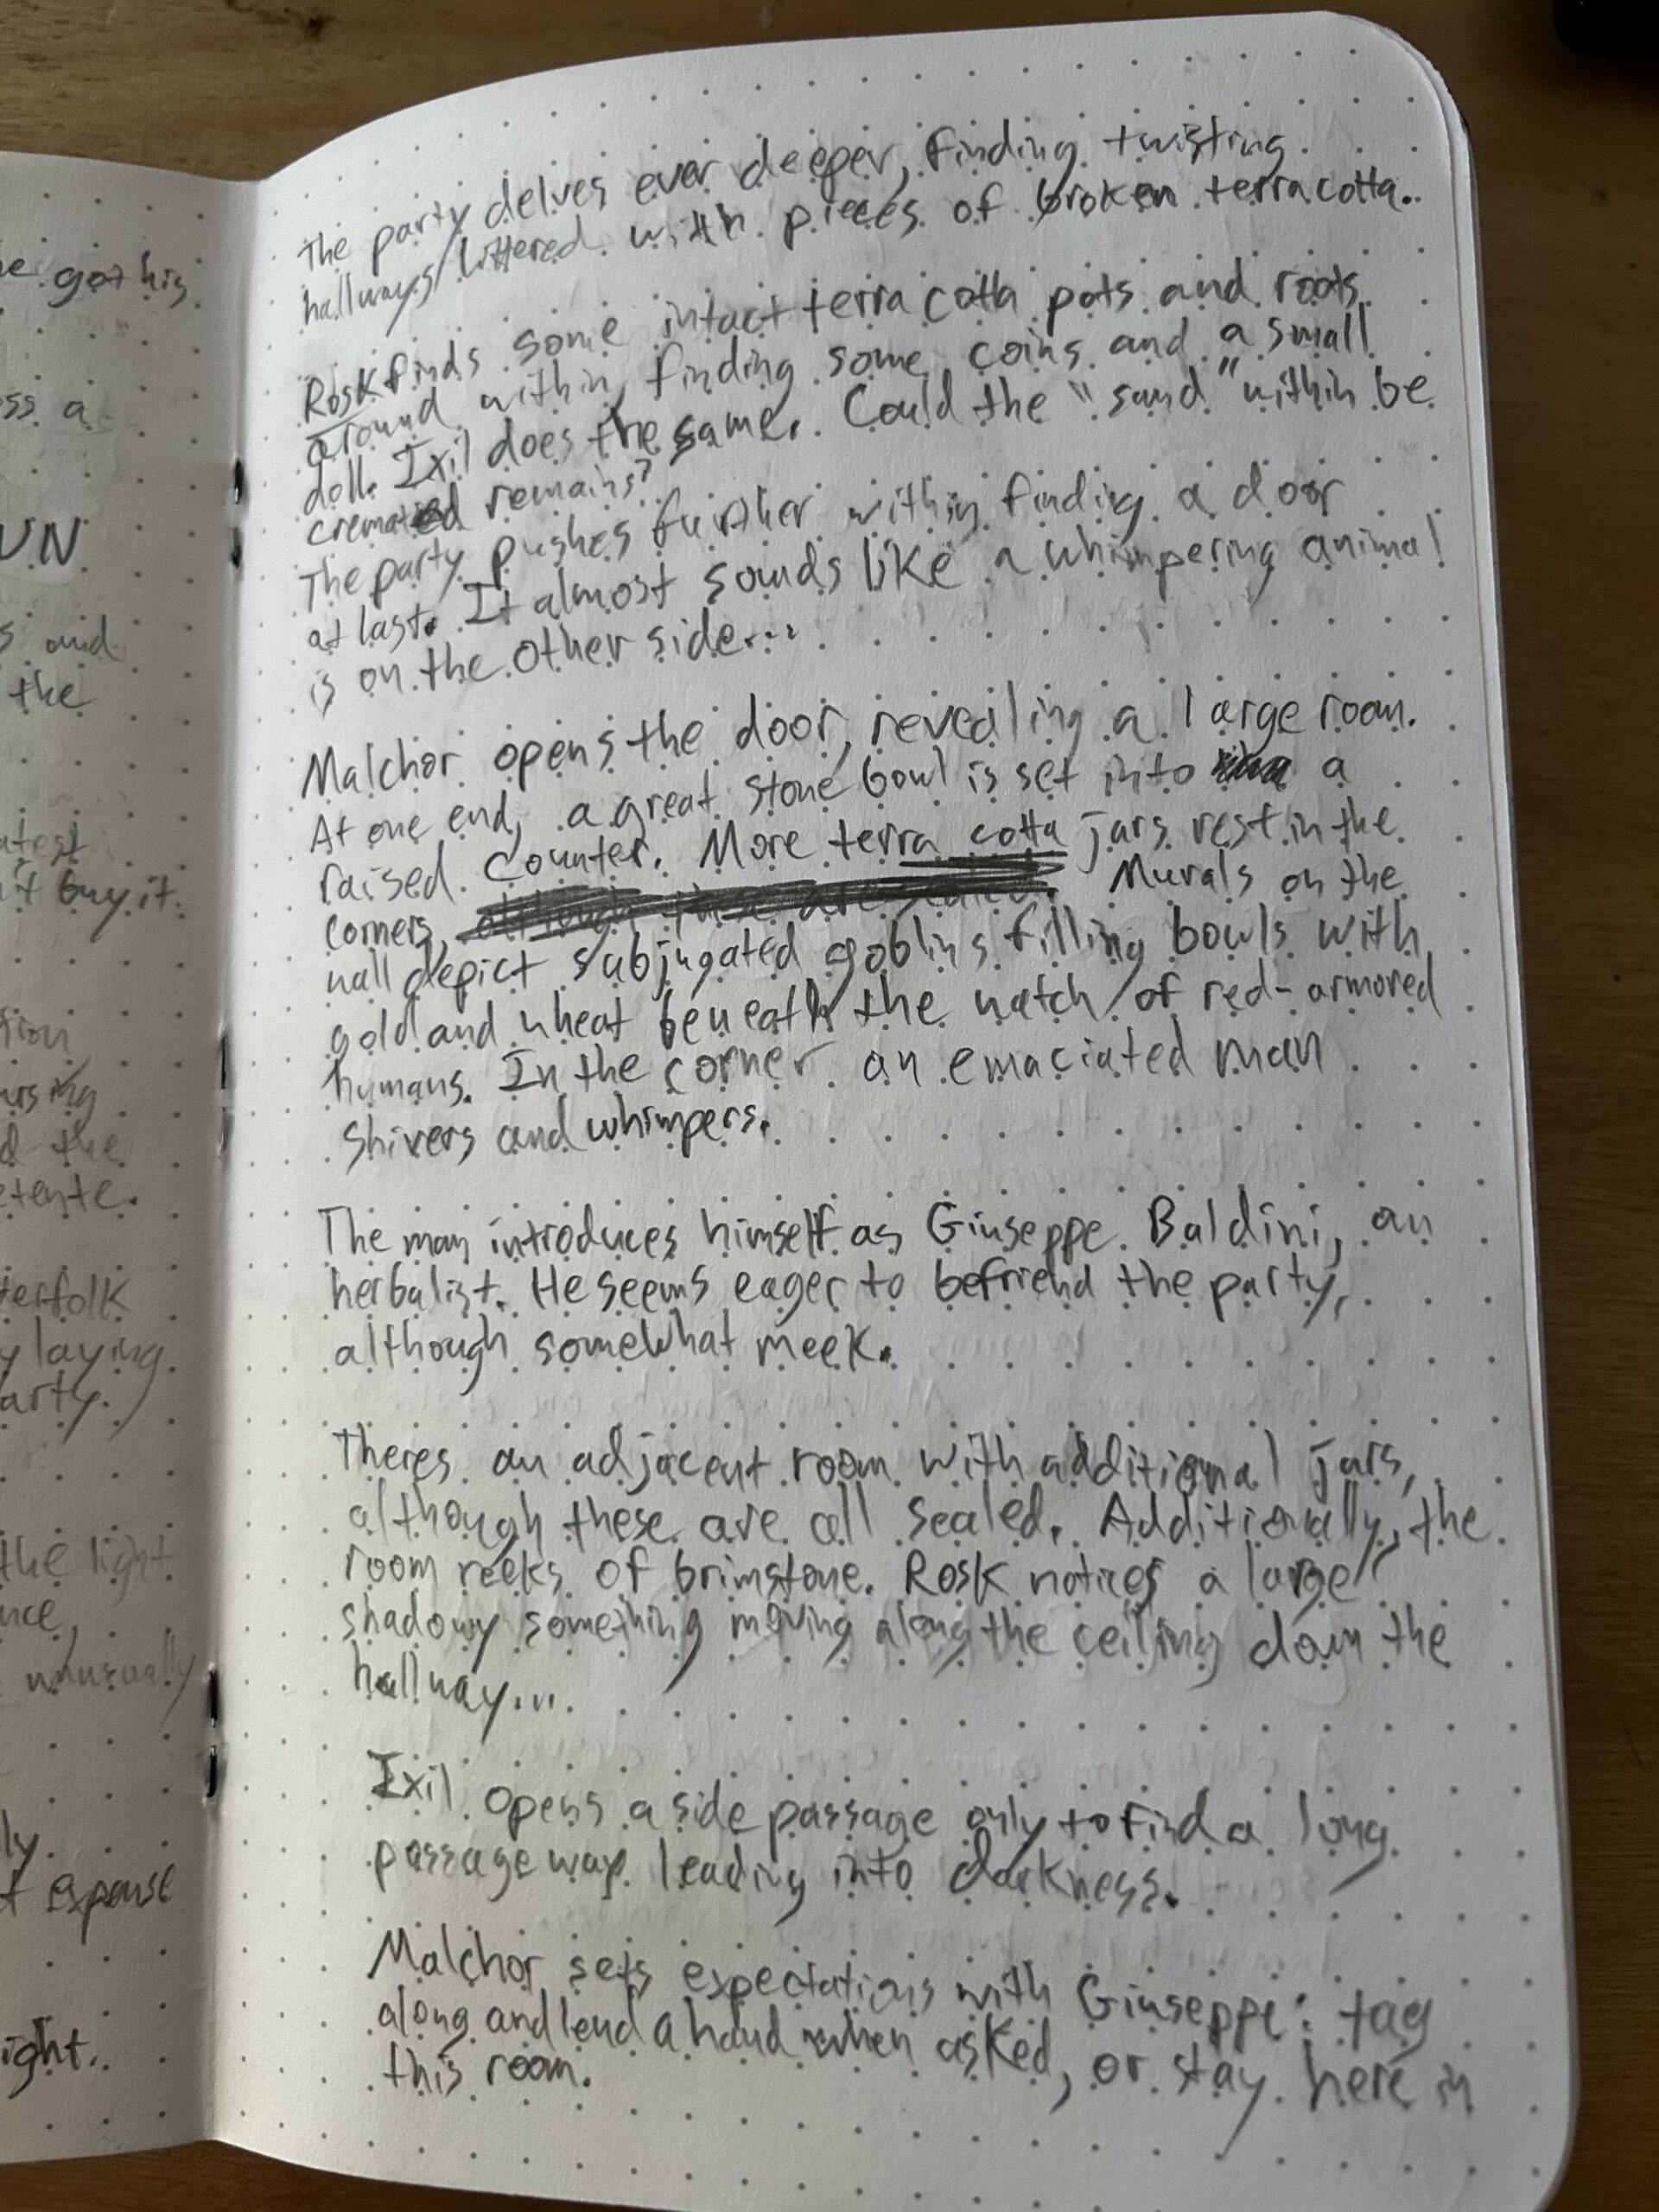 e got his
ss a
UN
s and
the
atest
't buy it.
tion
ursing
d the
etente.
terfolk
y laying
arty.
the light
nce,
unusually
ly.
t expense
ight..
The party delves ever deeper, finding twisting
hallways littered with pieces of broken terracotta.
Rosk finds some intact terra cotta pots and roots
around within, finding some coins and a small
doll. Ixil does the same. Could the "sand" within be
cremated remains?
The party pushes further within, finding a door
at last. It almost sounds like a whimpering animal
is on the other side...
Malchor opens the door, revealing a large room.
At one end, a great stone bowl is set into a
raised counter. More terra cotta jars rest in the
corners, although these are sealed. Murals on the
wall depict subjugated goblins filling bowls with
gold and wheat beneath the watch of red-armored
humans. In the corner an emaciated man
shivers and whimpers.
The man introduces himself as Giuseppe Baldini, an
herbalist. He seems eager to befriend the party,
although somewhat meek.
Theres an adjacent room with additional jars,
although these are all sealed. Additionally, the
room reeks of brimstone. Rosk notices a large
shadowy something moving along the ceiling down the
hallway...
Ixil opens a side passage only to find a long
passageway leading into darkness.
Malchor sets expectations with Giuseppe: tag
along and lend a hand when asked, or stay here in
this room.